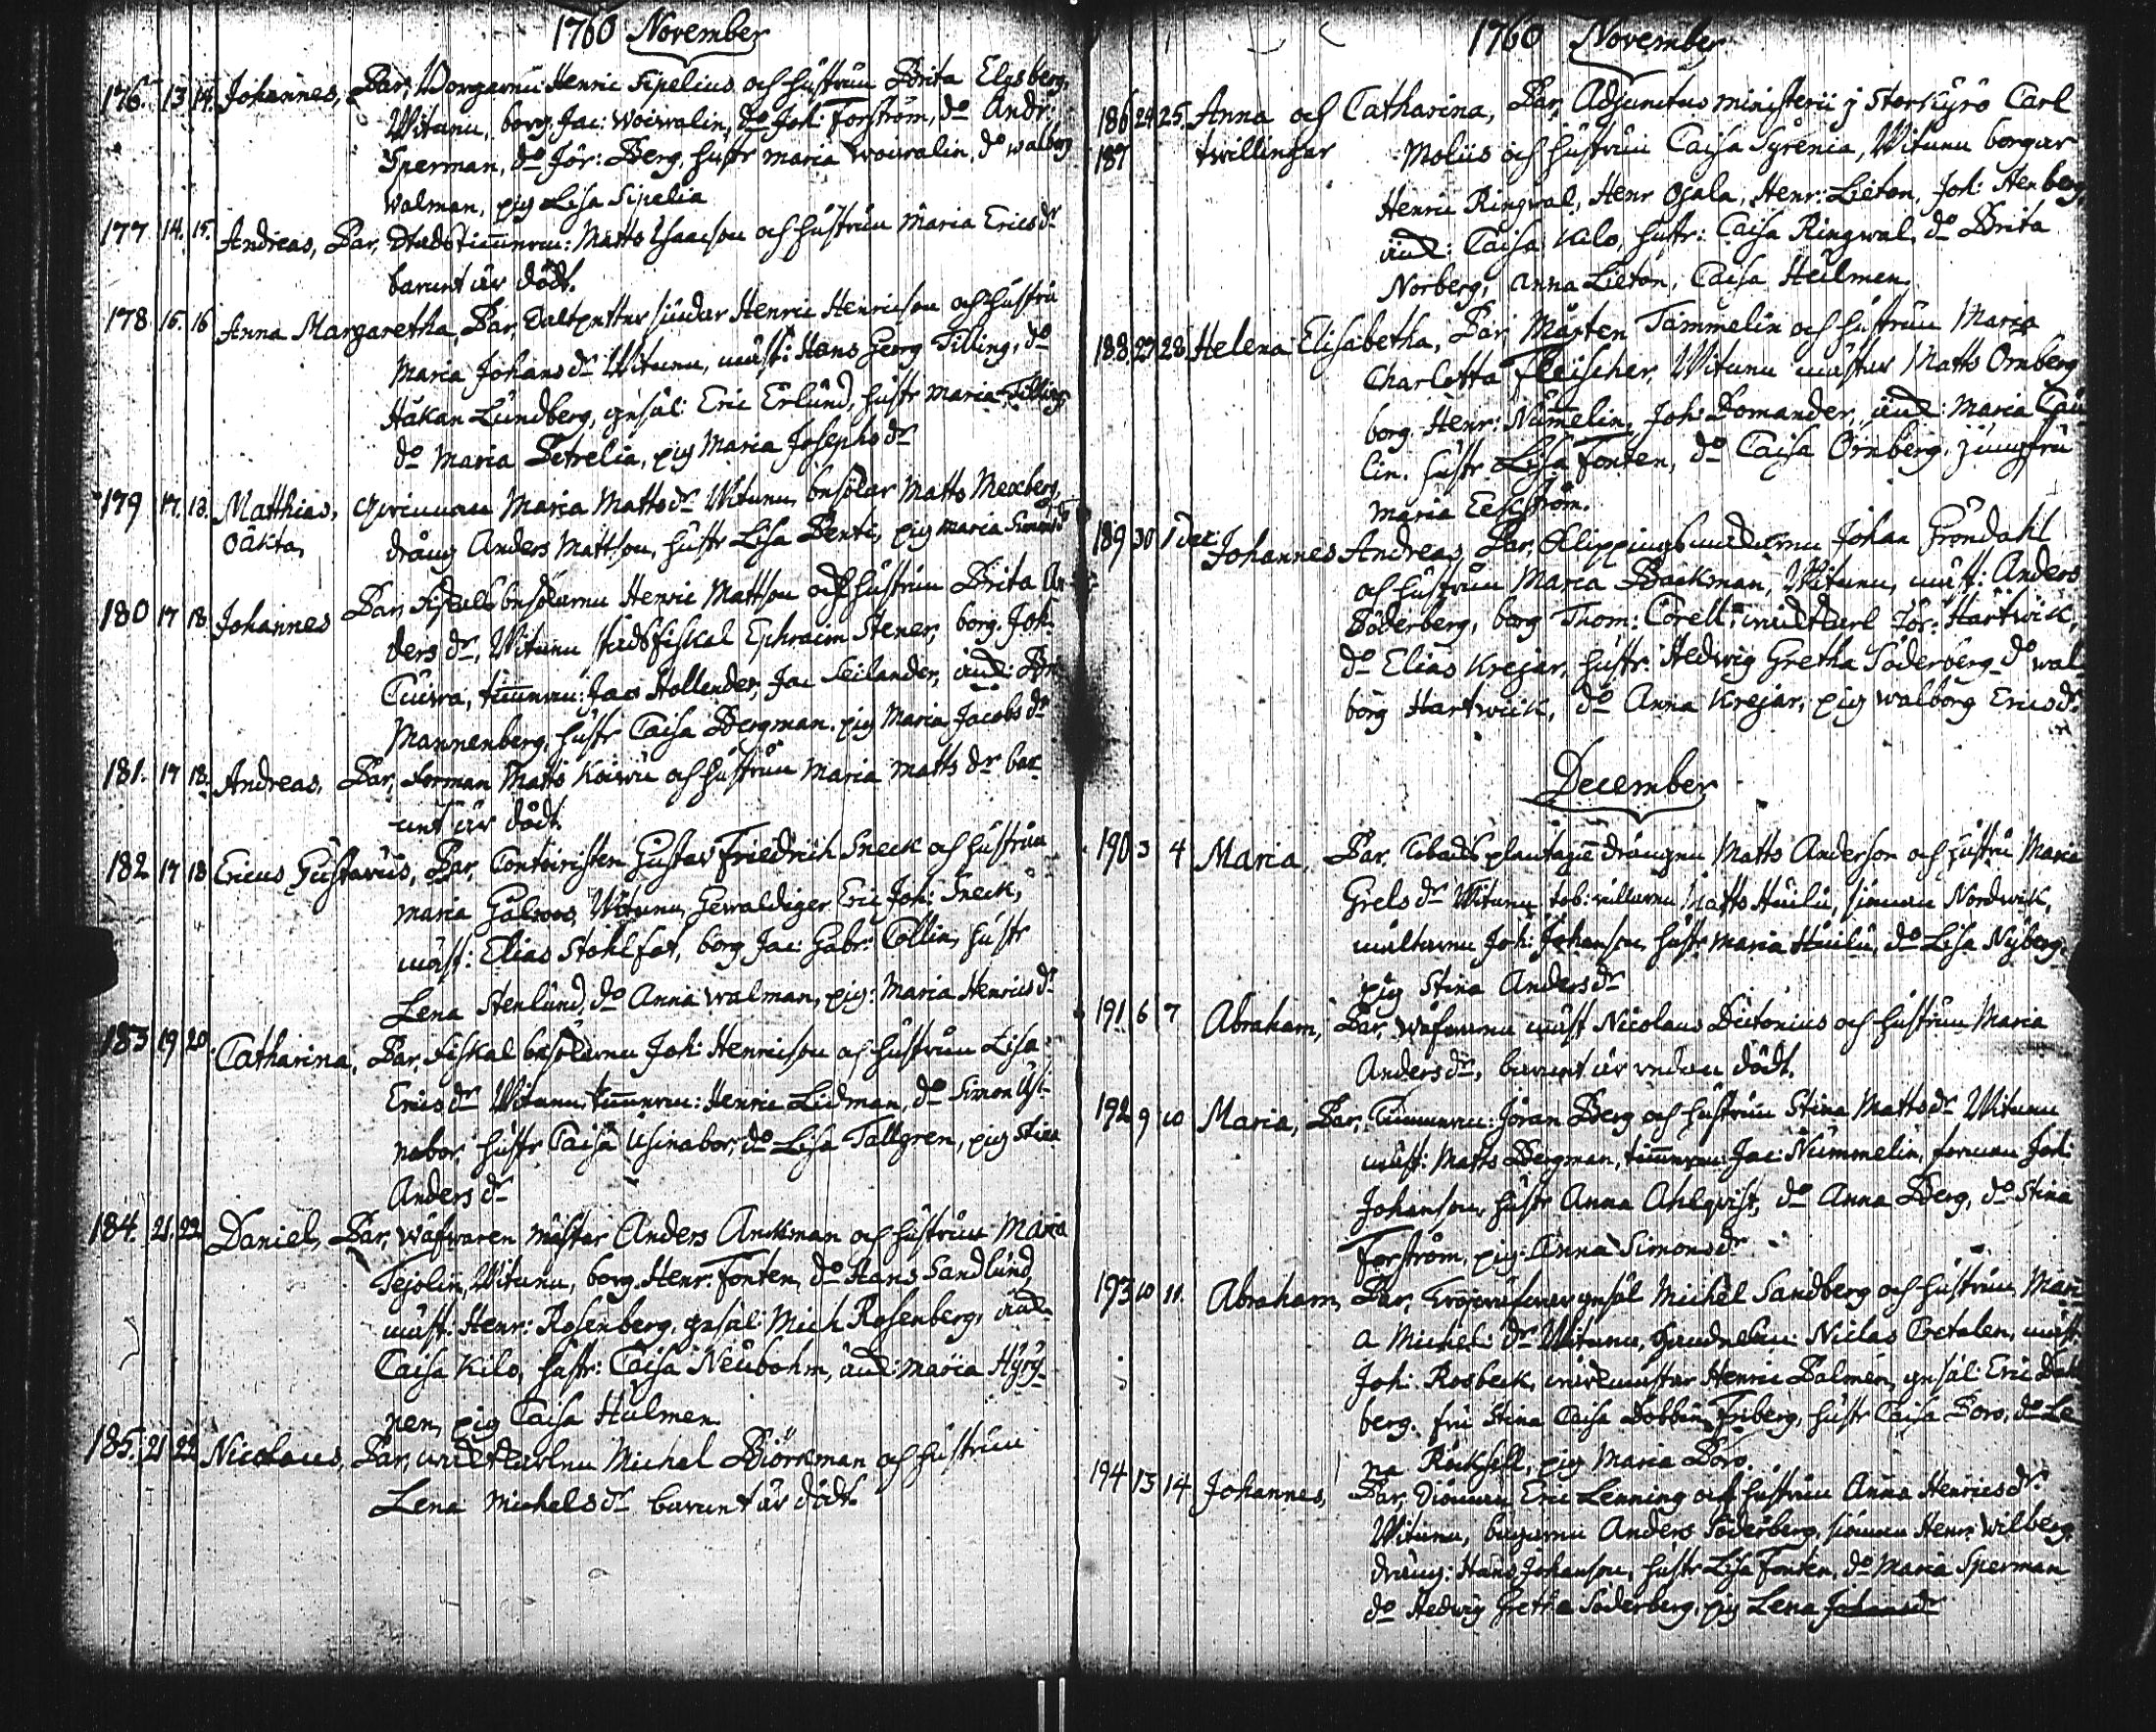 1760 November
176. 13 14. Johannes, Par, Borgaren Henric Sipelius och hustrun Brita Elgsberg,
Witnen, borg. Jac: Woiwalin, do Joh: Forström, do Andr:
Sperman, do Jör: Berg, hustr Maria Woiwalin, do Walborg
Walman, pig Lisa Sipelia
177 14. 15. Andreas, Par, Matts Isaacson och hustrun Maria Ericsdr
barnet är dödt.
178. 15. 16 Anna Margaretha, Par, Henric Henricson och hustru
Maria Johansdr Witnen, mäst: Hans Georg Tilling, do
Håkan Lundberg, gesäl: Eric Erlund, hustr Maria Tilling
do Maria Petrelia, pig Maria Josephsdr
179 17. 18. Matthias, qwinnan Maria Mattsdr Witnen, besökar Matts Mexberg,
oäkta, dräng Anders Mattson, hustr Lisa Benti, pig Maria Simonsdr
180 17 18. Johannes Par, besökaren Henric Mattson och hustrun Brita An
dersdr, Witnen stadsfiskal Ephraim Stener, borg. Joh:
timmerm: Jac Hollender, Jac Seilander, änk: Bri
Mannenberg, hustr Caisa Bergman, pig Maria Jacobsdr
181. 17 18. Andreas, Par, Forman Matts Koiwu och hustrun Maria Mattsdr bar
net är dödt.
182 17 18 Ericus Gustavus, Par, Contoiristen Gustav Friedrich Sneck och hustrun
Maria Witnen, Gewaldiger Eric Joh: Sneck,
mäst: Elias Stohlfot, borg Jac: Gabr: Collin, hustr
Lena Stenlund, do Anna Walman, pig: Maria Henricsdr
183 19 20. Catharina, Par, Fiskal besökaren Joh: Henricson och hustrun Lisa
Ericsdr Witnen timmerm: Henric Lidman, do Simon Usi-
nabor, hustr Caisa Usinabor, do Lisa Tallgren, pig Stina
Andersdr
184. 21. 22 Daniel, Par, mästar Anders Anckman och hustrun Maria
Tejolin, Witnen, borg. Henr: Fonten, do Hans Sandlund,
mäst: Henr: Rosenberg, gesäl: Mich Rosenberg, änk:
Caisa Kilo, hustr: Caisa Neubohm, änk: Maria Hyry-
nen, pig Caisa Hulmen
185. 21 22 Nicolaus, Par, Michel Biörkman och hustrun
Lena Michelsdr barnet är dödt.
1760 November
186 24 25. Anna och Catharina, Par, Adjunctus ministerii j Storkyro Carl
187 twillingar Moliis och hustrun Caisa Syrenia, Witnen borgar
Henric Ringwal, Henr Osala, Henr: Lieton, Joh: Stenberg
änk: Caisa Kilo, hustr: Caisa Ringwal, do Brita
Norberg, Anna Lieton, Caisa Heilmen.
188. 27 28. Helena Elisabetha, Par, Mårten Tammelin och hustrun Maria
Charlotta Fleischer, Witnen mästar Matts Ornberg
borg. Henr: Numelin, Joh: Bomander, änk: Maria
lin, hustr Lisa Fonten, do Caisa Ornberg, jungfru
Maria Eekström.
189 30 1 Dec Johannes Andreas, Par, Johan Gröndahl
och hustrun Maria Backman, Witnen, mäst: Anders
Söderberg, borg Thom: Corell, Jör: Hartwick,
do Elias Krejar, hustr: Hedwig Gretha Söderberg do Wal
borg Hartwick, do Anna Krejar, pig Walborg Ericsdr
December
190 3 4 Maria, Par, Tobaks plantage drängen Matts Anderson och hustru Maria
Grelsdr Witnen Matts Huilu, siöman Nordwik,
Joh: Johanson, hustr Maria Huilu, do Lisa Nyberg,
pig Stina Andersdr
191. 6 7 Abraham, Par, mäst Nicolaus Dictonius och hustrun Maria
Andersdr, barnet är redan dödt.
192 9 10 Maria, Par, Timmerm: Jöran Berg och hustrun Stina Mattsdr Witnen
mäst: Matts Bergman, timmerm: Jac: Nummelin, forman Joh:
Johanson, hustr Anna Ahlqvist, do Anna Berg, do Stina
Forström, pig: Anna Simonsdr
193 10 11. Abraham, Par, gesäl Michel Sandberg och hustrun Mari-
a Michelsdr Witnen, Niclas mäst
Joh: Rosbeck, Henric Palmen, gesäl: Eric
berg, fru Stina Caisa Friberg, hustr Caisa Poro, do Le
na pig Maria Poro.
194 13 14 Johannes, Par, Siöman Eric Lenning och hustrun Anna Henricsdr
Witnen, Anders Söderberg, siöman Henr: Wilberg,
dräng: Hans Johanson, hustr Lisa Fonten, do Maria Sperman
do Hedwig Gretha Söderberg, pig Lena Johansdr